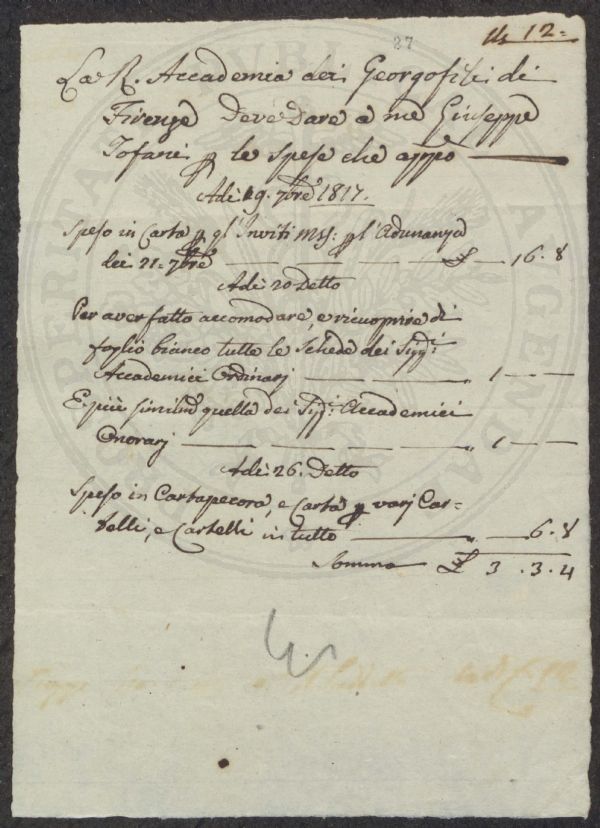 87
12=
La R. Accademia dei Georgofili di
Firenze Deve Dare a me Giuseppe
Tofani p le spese che appo
Adi: 19. 7bre 1817.
Speso in Carta p gl'Inviti Mss: p l'Adunanza
dei 21= 7bre — — — — — £ — 16. 8
Adi 20 Detto
Per aver fatto accomodare, e ricuoprire di
foglio bianco tutte le Schede dei Sigri
Accademici Ordinarj — — — — " 1 — —
E più simile quella dei Sigri Accademici
Onorarj — — — — — " 1 — —
Adi: 26. Detto
Speso in Cartapecora, e Carta p varj Car=
telli, e Cartelli in tutto — — " — 6. 8
Somma £ 3. 3. 4